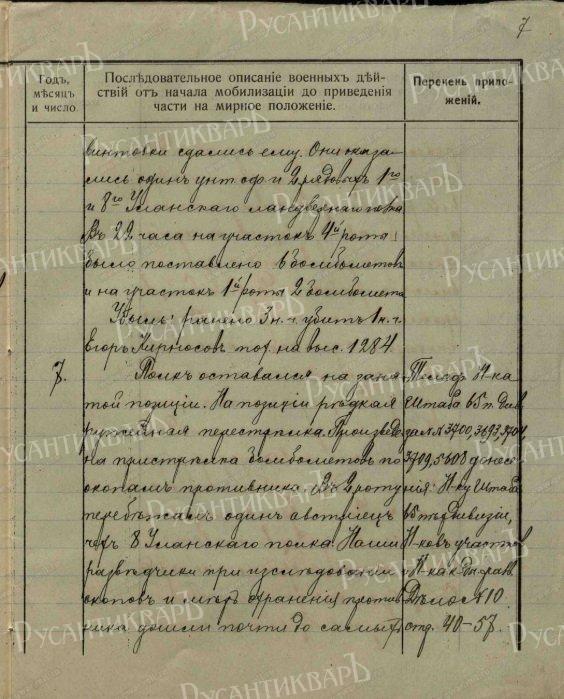 7
Годъ, мѣсяцъ и число.
Послѣдовательное описаніе военныхъ дѣй-
ствій отъ начала мобилизаціи до приведенія
части на мирное положеніе.
Перечень прило-
женій.
винтовки сдались ему. Они оказа-
лись одинъ унт. оф и 2 рядовыхъ 1го
и 8го Уланскаго ландвернаго полка
Въ 22 часа на участокъ 4й роты
было поставлено 6 бомбометовъ
и на участокъ 1й роты 2 бомбомета
Убыль: ранено 3 н. ч. убитъ 1 н. ч.
Егоръ Кирносовъ пох. на выс. 1284.
7.
Полкъ оставался на заня
той позиціи. На позиціи рѣдкая
ружейная перестрѣлка. Произведе
на пристрѣлка бомбометовъ по
окопамъ противника. Въ 2 роту
перебѣжалъ одинъ австріецъ
8 Уланскаго полка. Наши
развѣдчики при изслѣдованіи
окоповъ и мѣръ охраненія против
ника дошли почти до самыхъ
Н-ка
Штаба 65 п. див
за № № 3700, 3693, 3704,
3709, 5603 донесе
нія: Н-ку Штаба
65 дивизіи,
Н-ковъ участковъ
Дѣло № 10.
стр. 40-57.
РусАнтикварЪ
РусАнтикварЪ
РусАнтикварЪ
РусАнтикварЪ
РусАнтикварЪ
РусАнтикварЪ
РусАнтикварЪ
РусАнтикварЪ
РусАнтикварЪ